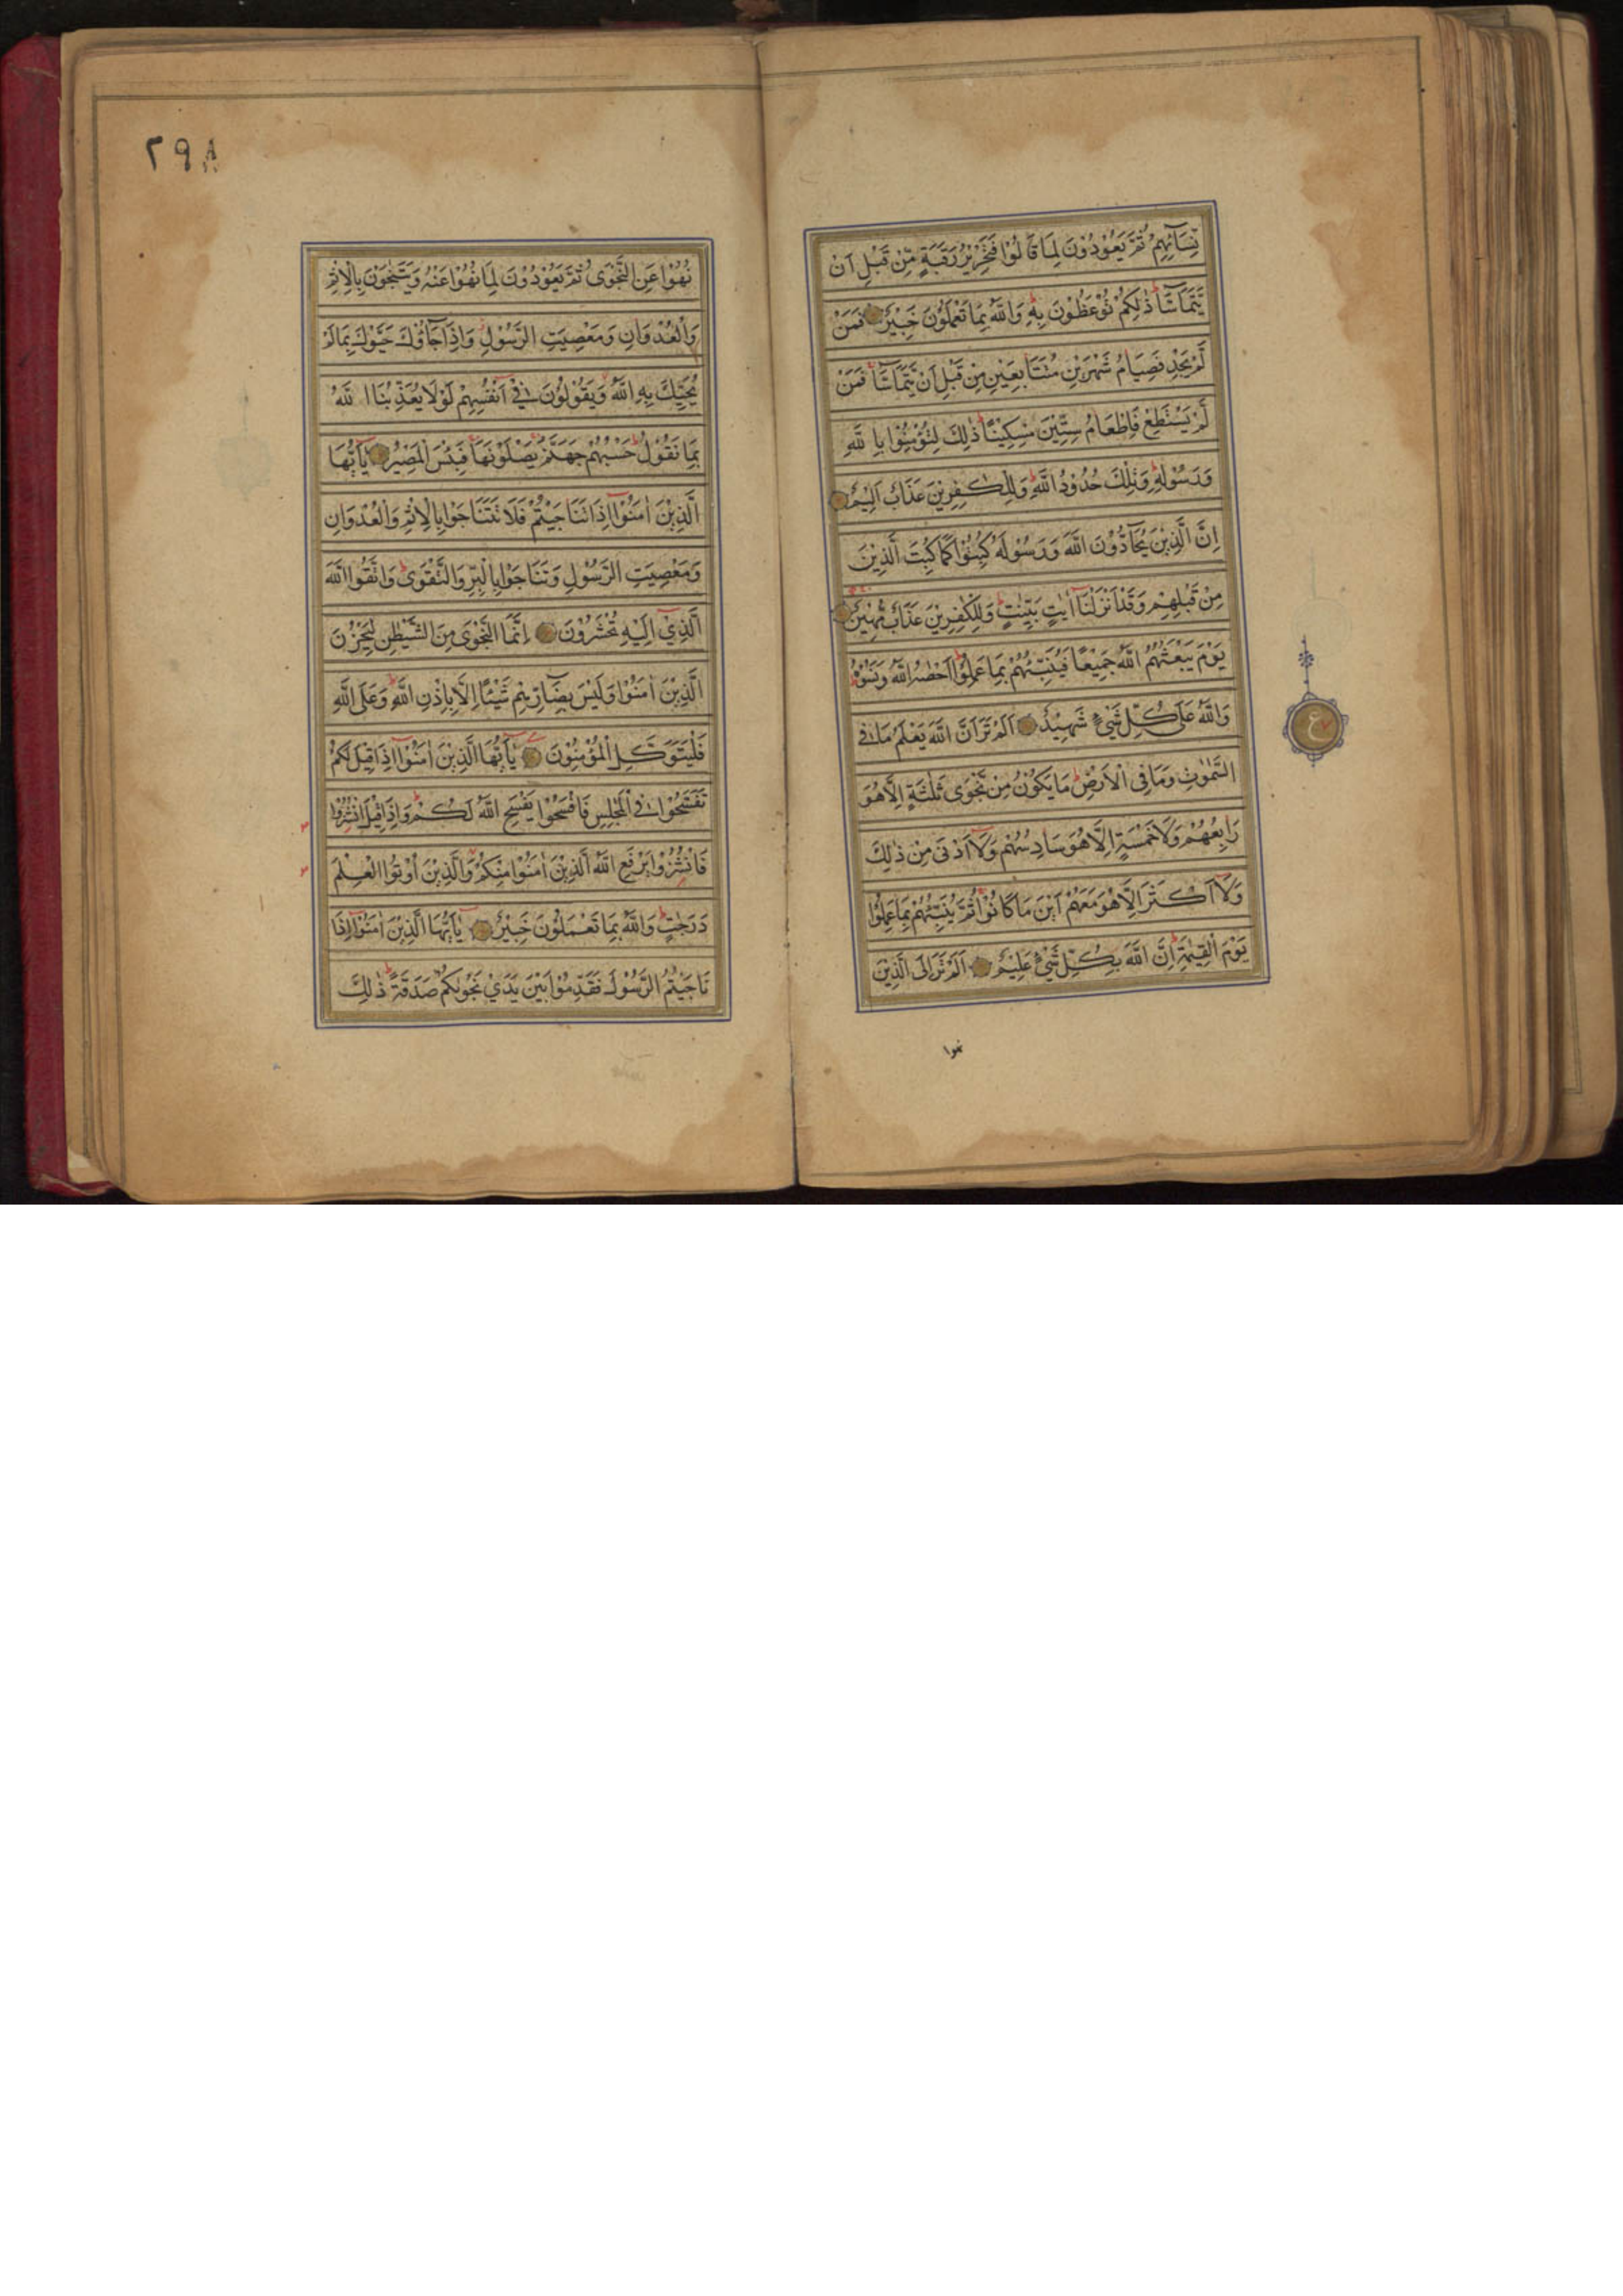 نِّسَآئِهِمْ ثُمَّ يَعُوْدُوْنَ لِمَا قَالُوْا فَتَحْرِيْرُ رَقَبَةٍ مِّنْ قَبْلِ اَنْ
يَّتَمَآسَّا ذٰلِكُمْ تُوْعَظُوْنَ بِهٖ وَاللّٰهُ بِمَا تَعْمَلُوْنَ خَبِيْرٌ فَمَنْ
لَّمْ يَجِدْ فَصِيَامُ شَهْرَيْنِ مُتَتَابِعَيْنِ مِنْ قَبْلِ اَنْ يَّتَمَآسَّا فَمَنْ
لَّمْ يَسْتَطِعْ فَاِطْعَامُ سِتِّيْنَ مِسْكِيْنًا ذٰلِكَ لِتُؤْمِنُوْا بِاللّٰهِ
وَرَسُوْلِهٖ وَتِلْكَ حُدُوْدُ اللّٰهِ وَلِلْكٰفِرِيْنَ عَذَابٌ اَلِيْمٌ
اِنَّ الَّذِيْنَ يُحَآدُّوْنَ اللّٰهَ وَرَسُوْلَهٗ كُبِتُوْا كَمَا كُبِتَ الَّذِيْنَ
مِنْ قَبْلِهِمْ وَقَدْ اَنْزَلْنَآ اٰيٰتٍ بَيِّنٰتٍ وَلِلْكٰفِرِيْنَ عَذَابٌ مُّهِيْنٌ
يَوْمَ يَبْعَثُهُمُ اللّٰهُ جَمِيْعًا فَيُنَبِّئُهُمْ بِمَا عَمِلُوْا اَحْصٰىهُ اللّٰهُ وَنَسُوْهُ
وَاللّٰهُ عَلٰى كُلِّ شَيْءٍ شَهِيْدٌ اَلَمْ تَرَ اَنَّ اللّٰهَ يَعْلَمُ مَا فِي
السَّمٰوٰتِ وَمَا فِي الْاَرْضِ مَا يَكُوْنُ مِنْ نَّجْوٰى ثَلٰثَةٍ اِلَّا هُوَ
رَابِعُهُمْ وَلَا خَمْسَةٍ اِلَّا هُوَ سَادِسُهُمْ وَلَآ اَدْنٰى مِنْ ذٰلِكَ
وَلَآ اَكْثَرَ اِلَّا هُوَ مَعَهُمْ اَيْنَ مَا كَانُوْا ثُمَّ يُنَبِّئُهُمْ بِمَا عَمِلُوْا
يَوْمَ الْقِيٰمَةِ اِنَّ اللّٰهَ بِكُلِّ شَيْءٍ عَلِيْمٌ اَلَمْ تَرَ اِلَى الَّذِيْنَ
نهوا
ع
٢٩٨
نُهُوْا عَنِ النَّجْوٰى ثُمَّ يَعُوْدُوْنَ لِمَا نُهُوْا عَنْهُ وَيَتَنٰجَوْنَ بِالْاِثْمِ
وَالْعُدْوَانِ وَمَعْصِيَتِ الرَّسُوْلِ وَاِذَا جَآؤُكَ حَيَّوْكَ بِمَا لَمْ
يُحَيِّكَ بِهِ اللّٰهُ وَيَقُوْلُوْنَ فِيْٓ اَنْفُسِهِمْ لَوْلَا يُعَذِّبُنَا اللّٰهُ
بِمَا نَقُوْلُ حَسْبُهُمْ جَهَنَّمُ يَصْلَوْنَهَا فَبِئْسَ الْمَصِيْرُ يٰٓاَيُّهَا
الَّذِيْنَ اٰمَنُوْٓا اِذَا تَنَاجَيْتُمْ فَلَا تَتَنَاجَوْا بِالْاِثْمِ وَالْعُدْوَانِ
وَمَعْصِيَتِ الرَّسُوْلِ وَتَنَاجَوْا بِالْبِرِّ وَالتَّقْوٰى وَاتَّقُوا اللّٰهَ
الَّذِيْٓ اِلَيْهِ تُحْشَرُوْنَ اِنَّمَا النَّجْوٰى مِنَ الشَّيْطٰنِ لِيَحْزُنَ
الَّذِيْنَ اٰمَنُوْا وَلَيْسَ بِضَآرِّهِمْ شَيْئًا اِلَّا بِاِذْنِ اللّٰهِ وَعَلَى اللّٰهِ
فَلْيَتَوَكَّلِ الْمُؤْمِنُوْنَ يٰٓاَيُّهَا الَّذِيْنَ اٰمَنُوْٓا اِذَا قِيْلَ لَكُمْ
تَفَسَّحُوْا فِي الْمَجٰلِسِ فَافْسَحُوْا يَفْسَحِ اللّٰهُ لَكُمْ وَاِذَا قِيْلَ انْشُزُوْا
فَانْشُزُوْا يَرْفَعِ اللّٰهُ الَّذِيْنَ اٰمَنُوْا مِنْكُمْ وَالَّذِيْنَ اُوْتُوا الْعِلْمَ
دَرَجٰتٍ وَاللّٰهُ بِمَا تَعْمَلُوْنَ خَبِيْرٌ يٰٓاَيُّهَا الَّذِيْنَ اٰمَنُوْٓا اِذَا
نَاجَيْتُمُ الرَّسُوْلَ فَقَدِّمُوْا بَيْنَ يَدَيْ نَجْوٰىكُمْ صَدَقَةً ذٰلِكَ